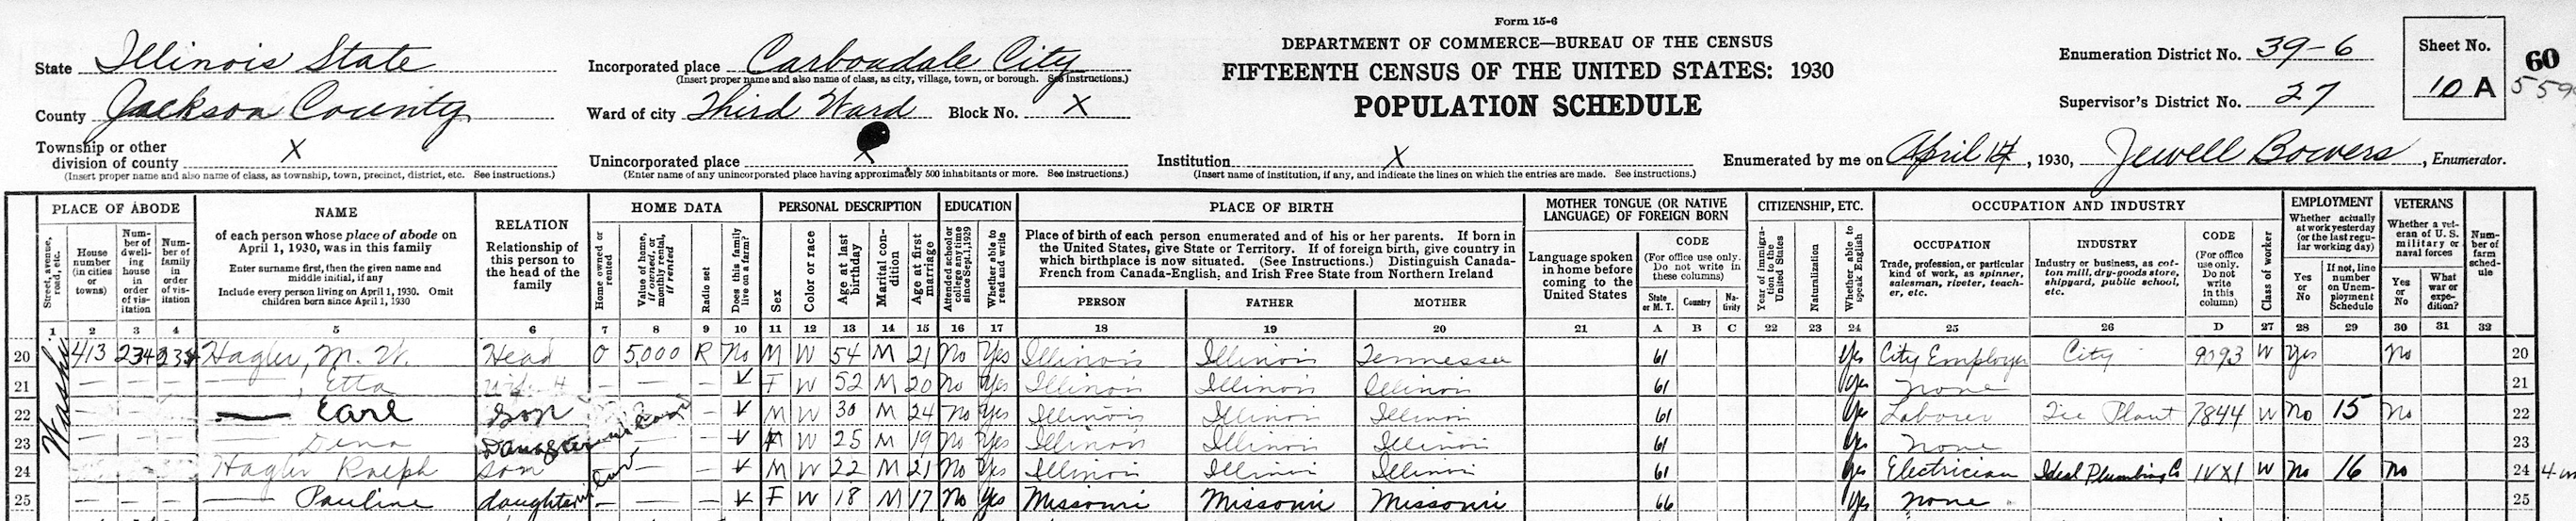 Form 15-6
DEPARTMENT OF COMMERCE—BUREAU OF THE CENSUS
FIFTEENTH CENSUS OF THE UNITED STATES: 1930
POPULATION SCHEDULE
State Illinois State
County Jackson County
Township or other division of county X
(Insert proper name and also name of class, as township, town, precinct, district, etc. See instructions.)
Incorporated place Carbondale City
(Insert proper name and also name of class, as city, village, town, or borough. See instructions.)
Ward of city Third Ward Block No. X
Unincorporated place X
(Enter name of any unincorporated place having approximately 500 inhabitants or more. See instructions.)
Institution X
(Insert name of institution, if any, and indicate the lines on which the entries are made. See instructions.)
Enumeration District No. 39-6
Supervisor's District No. 27
Sheet No.
10 A
60
Enumerated by me on April 14, 1930, Jewell Bowers, Enumerator.
PLACE OF ABODE
Street, avenue, road, etc.
House number (in cities or towns)
Number of dwelling house in order of visitation
Number of family in order of visitation
NAME
of each person whose place of abode on April 1, 1930, was in this family
Enter surname first, then the given name and middle initial, if any
Include every person living on April 1, 1930. Omit children born since April 1, 1930
RELATION
Relationship of this person to the head of the family
HOME DATA
Home owned or rented
Value of home, if owned, or monthly rental, if rented
Radio set
Does this family live on a farm?
PERSONAL DESCRIPTION
Sex
Color or race
Age at last birthday
Marital condition
Age at first marriage
EDUCATION
Attended school or college any time since Sept. 1, 1929
Whether able to read and write
PLACE OF BIRTH
Place of birth of each person enumerated and of his or her parents. If born in the United States, give State or Territory. If of foreign birth, give country in which birthplace is now situated. (See Instructions.) Distinguish Canada-French from Canada-English, and Irish Free State from Northern Ireland
PERSON
FATHER
MOTHER
MOTHER TONGUE (OR NATIVE LANGUAGE) OF FOREIGN BORN
Language spoken in home before coming to the United States
CODE
(For office use only. Do not write in these columns)
State or M. T.
Country
Nativity
CITIZENSHIP, ETC.
Year of immigration to the United States
Naturalization
Whether able to speak English
OCCUPATION AND INDUSTRY
OCCUPATION
Trade, profession, or particular kind of work, as spinner, salesman, riveter, teacher, etc.
INDUSTRY
Industry or business, as cotton mill, dry-goods store, shipyard, public school, etc.
CODE
(For office use only. Do not write in this column)
Class of worker
EMPLOYMENT
Whether actually at work yesterday (or the last regular working day)
Yes or No
If not, line number on Unemployment Schedule
VETERANS
Whether a veteran of U. S. military or naval forces
Yes or No
What war or expedition?
Number of farm schedule
1 2 3 4 5 6 7 8 9 10 11 12 13 14 15 16 17 18 19 20 21 A B C 22 23 24 25 26 D 27 28 29 30 31 32
20 413 234 234 Hagler, M. W. Head O 5,000 R No M W 54 M 21 No Yes Illinois Illinois Tennessee 61 Yes City Employee City 9093 W Yes No 20
21 — — — —, Etta — — — V F W 52 M 20 No Yes Illinois Illinois Illinois 61 Yes None 21
22 — — — — Earl Son — V M W 30 M 24 No Yes Illinois Illinois Illinois 61 Yes Laborer Tie Plant 7844 W No 15 No 22
23 — — — — Dena Daughter — V W 25 M 19 No Yes Illinois Illinois Illinois 61 Yes None 23
24 Hagler Ralph Son — — V M W 22 M 21 No Yes Illinois Illinois Illinois 61 Yes Electrician Ideal Plumbing Co IVX1 W No 16 No 24
25 — — — — Pauline daughter — — — V F W 18 M 17 No Yes Missouri Missouri Missouri 66 Yes None 25